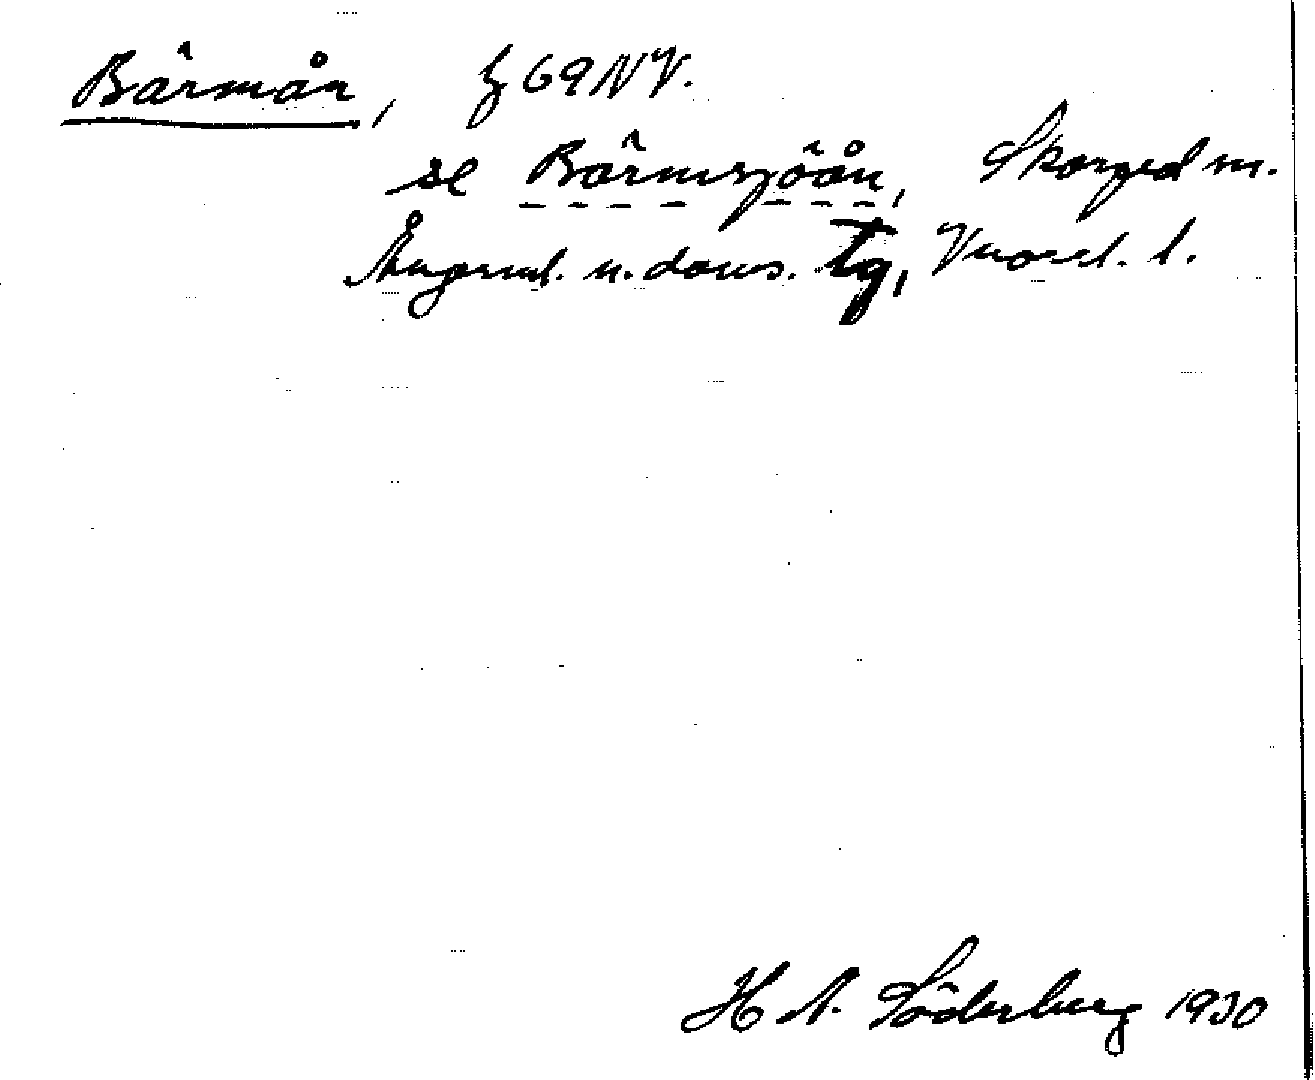 Bärmån, 69 NV.
se Bärmsjöån, Skorped sn.
Ångerml. n. doms. tg, Vnorrl. l.
H A. Söderberg 1930